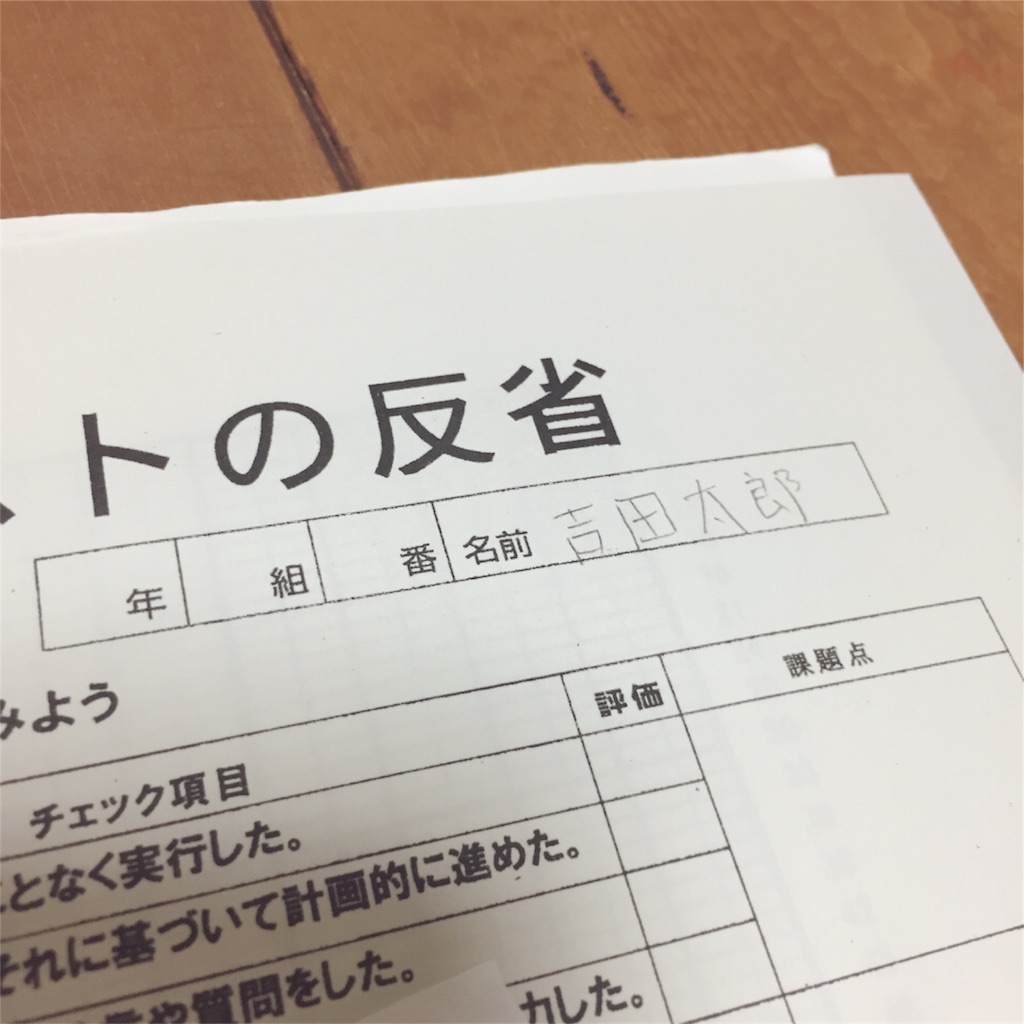 トの反省
年 組 番 名前 吉田太郎
みよう
チェック項目 評価 課題点
ことなく実行した。
それに基づいて計画的に進めた。
や質問をした。
力した。